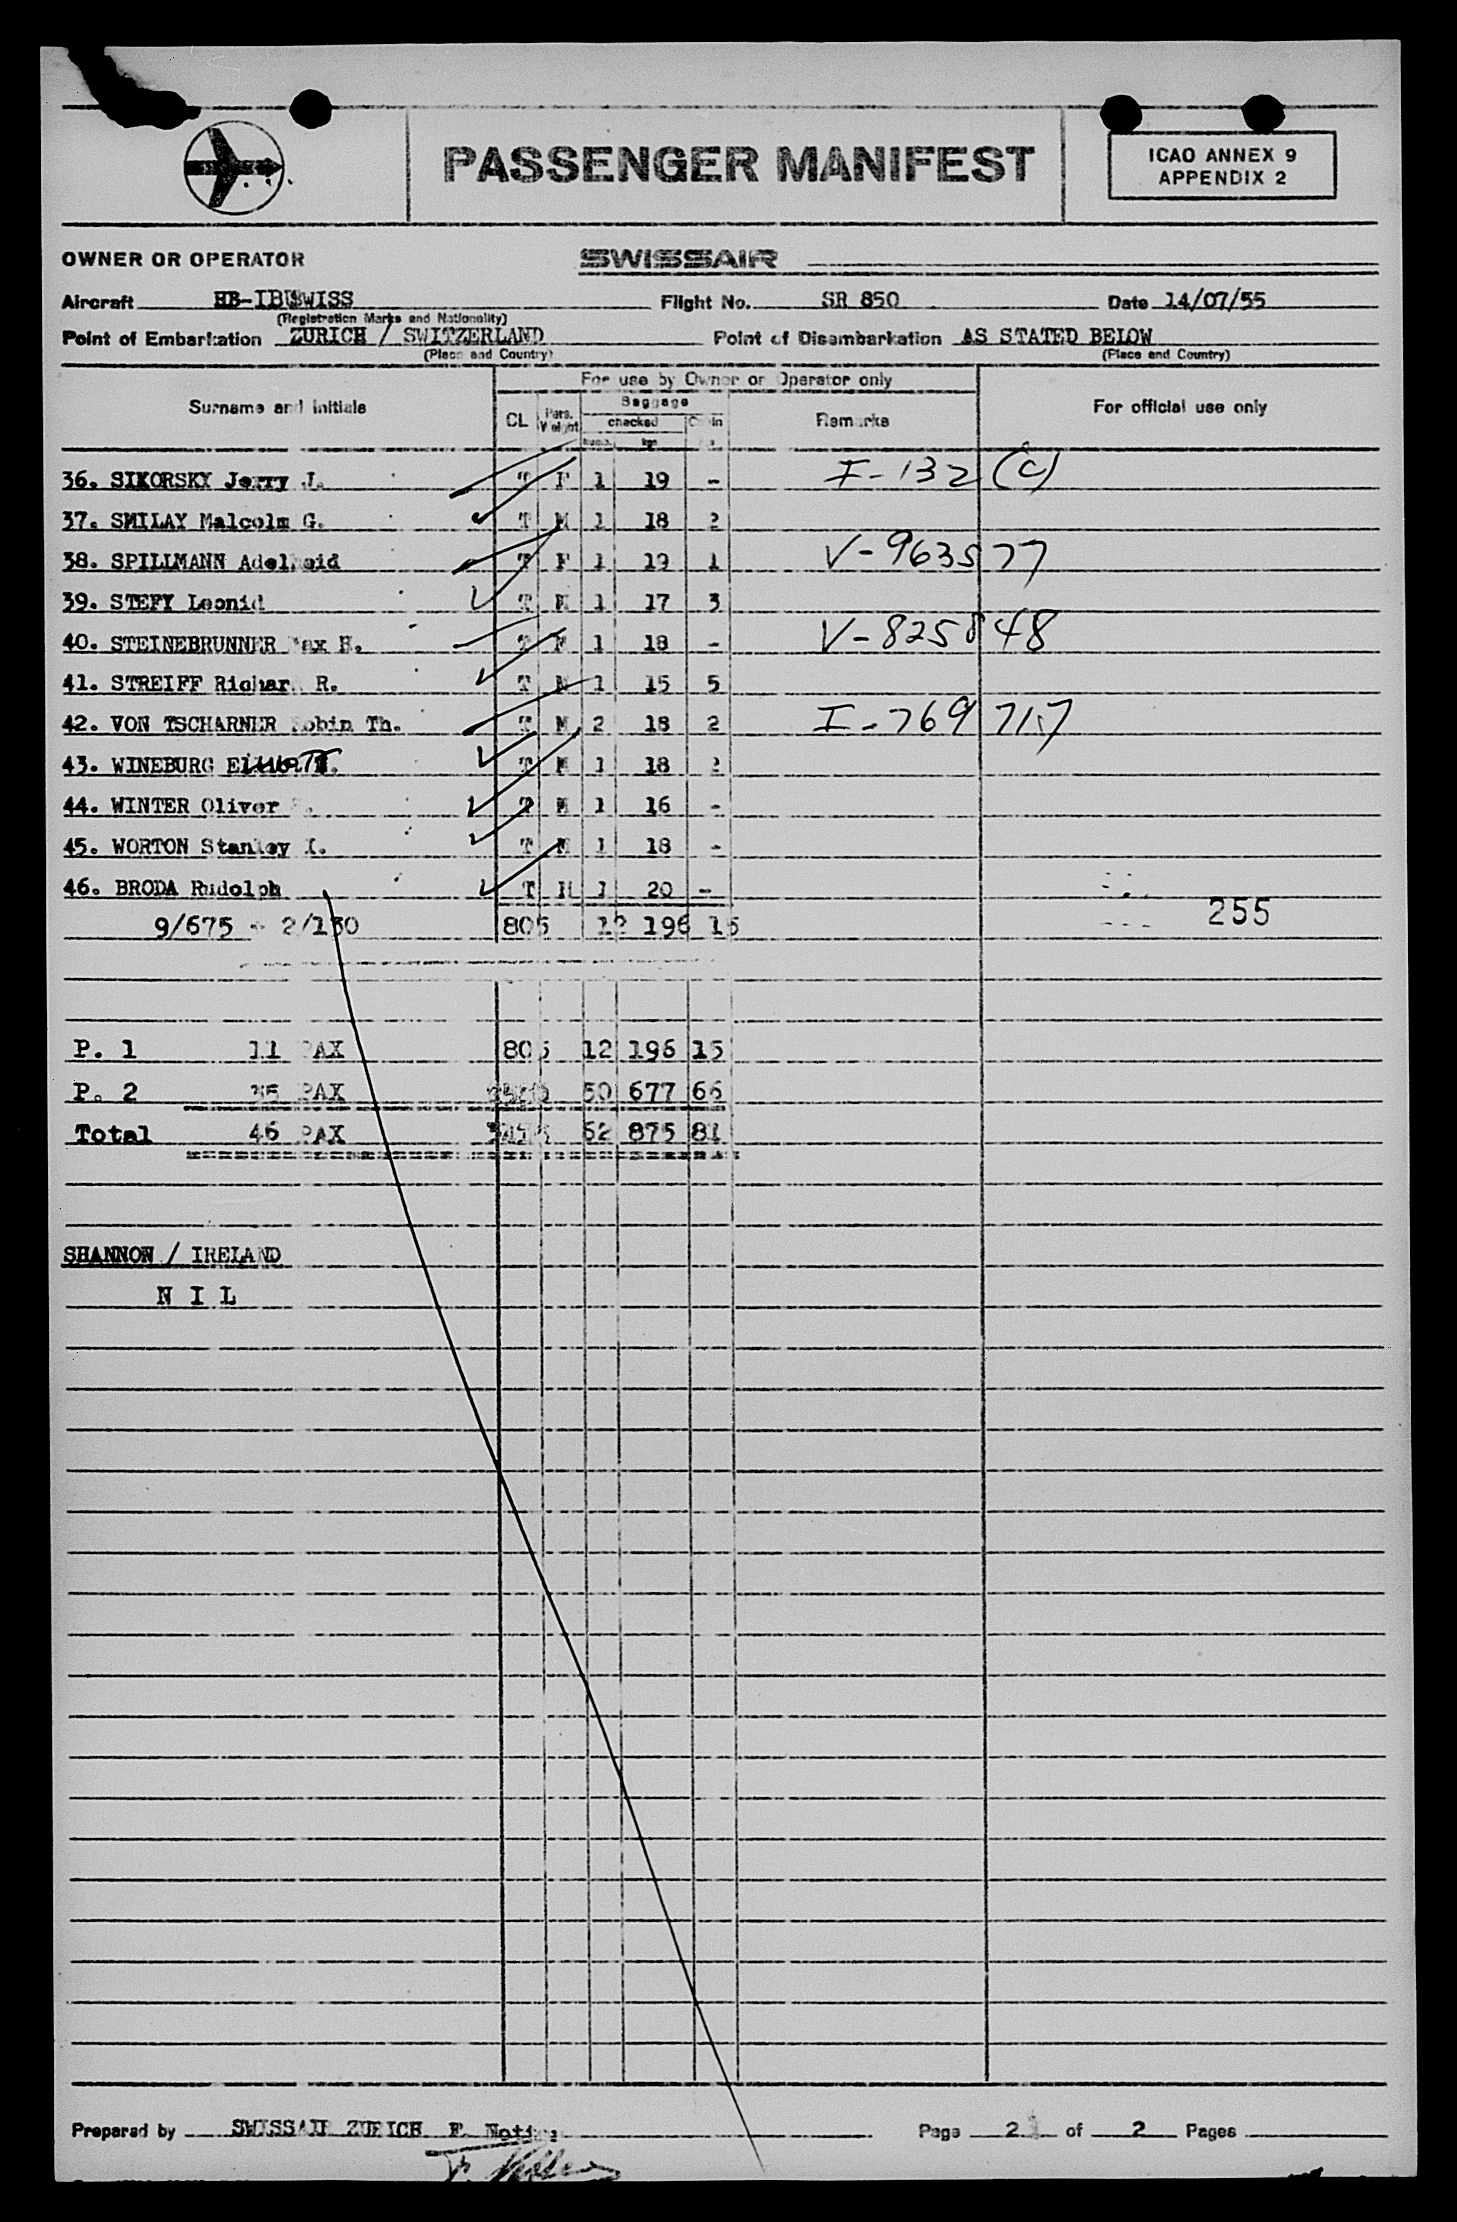 PASSENGER MANIFEST
ICAO ANNEX 9
APPENDIX 2
OWNER OR OPERATOR SWISSAIR
Aircraft HB-IBU SWISS Flight No. SR 850 Date 14/07/55
(Registration Marks and Nationality)
Point of Embarkation ZURICH / SWITZERLAND Point of Disembarkation AS STATED BELOW
(Place and Country) (Place and Country)
For use by Owner or Operator only
Surname and initials CL Pers. Weight Baggage checked Cabin Remarks For official use only
kgs
36. SIKORSKY Jerry J. T F 1 19 - I-132 (c)
37. SMILAY Malcolm G. T M 1 18 2
38. SPILLMANN Adelheid T F 1 19 1 V-963577
39. STEFY Leonid T M 1 17 3
40. STEINEBRUNNER Max H. T M 1 18 - V-825848
41. STREIFF Richard R. T M 1 15 5
42. VON TSCHARNER Robin Th. T M 2 18 2 I-769717
43. WINEBURG Elliott T M 1 18 2
44. WINTER Oliver T M 1 16 -
45. WORTON Stanley I. T M 1 18 -
46. BRODA Rudolph T M 1 20 -
9/675 - 2/130 805 12 196 15
255
P. 1 11 PAX 805 12 196 15
P. 2 35 PAX 50 677 66
Total 46 PAX 62 875 81
SHANNON / IRELAND
N I L
Prepared by SWISSAIR ZURICH F.
Page 2 of 2 Pages